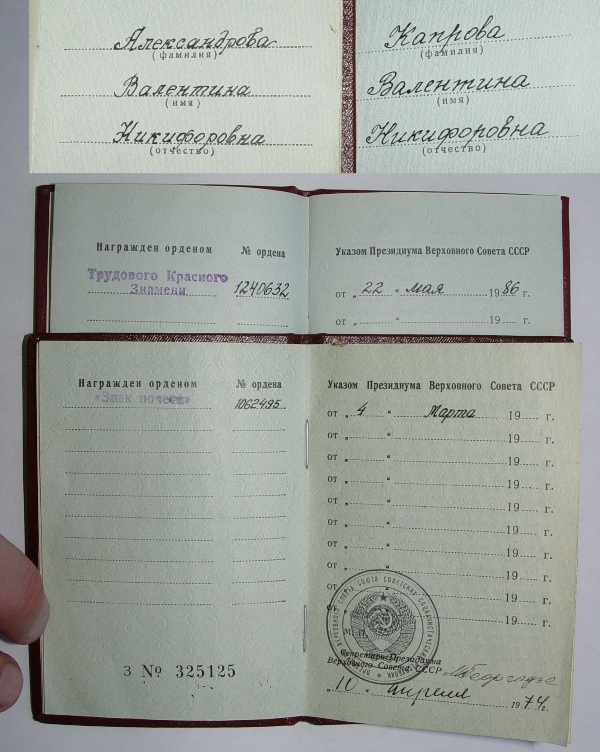 Александрова
(фамилия)
Валентина
(имя)
Никифоровна
(отчество)
Капрова
(фамилия)
Валентина
(имя)
Никифоровна
(отчество)
Награжден орденом № ордена
Трудового Красного
Знамени 1240632
Указом Президиума Верховного Совета СССР
от „ 22 " мая 1986 г.
от „ " 19 г.
Награжден орденом № ордена
«Знак почета» 1062495
Указом Президиума Верховного Совета СССР
от „ 4 " Марта 19 г.
от „ " 19 г.
от „ " 19 г.
от „ " 19 г.
от „ " 19 г.
от „ " 19 г.
от „ " 19 г.
от „ " 19 г.
от „ " 19 г.
от „ 19 г.
М. П.
Секретарь Президиума
Верховного Совета СССР М Георгадзе
„ 10 " апреля 1974 г.
З № 325125